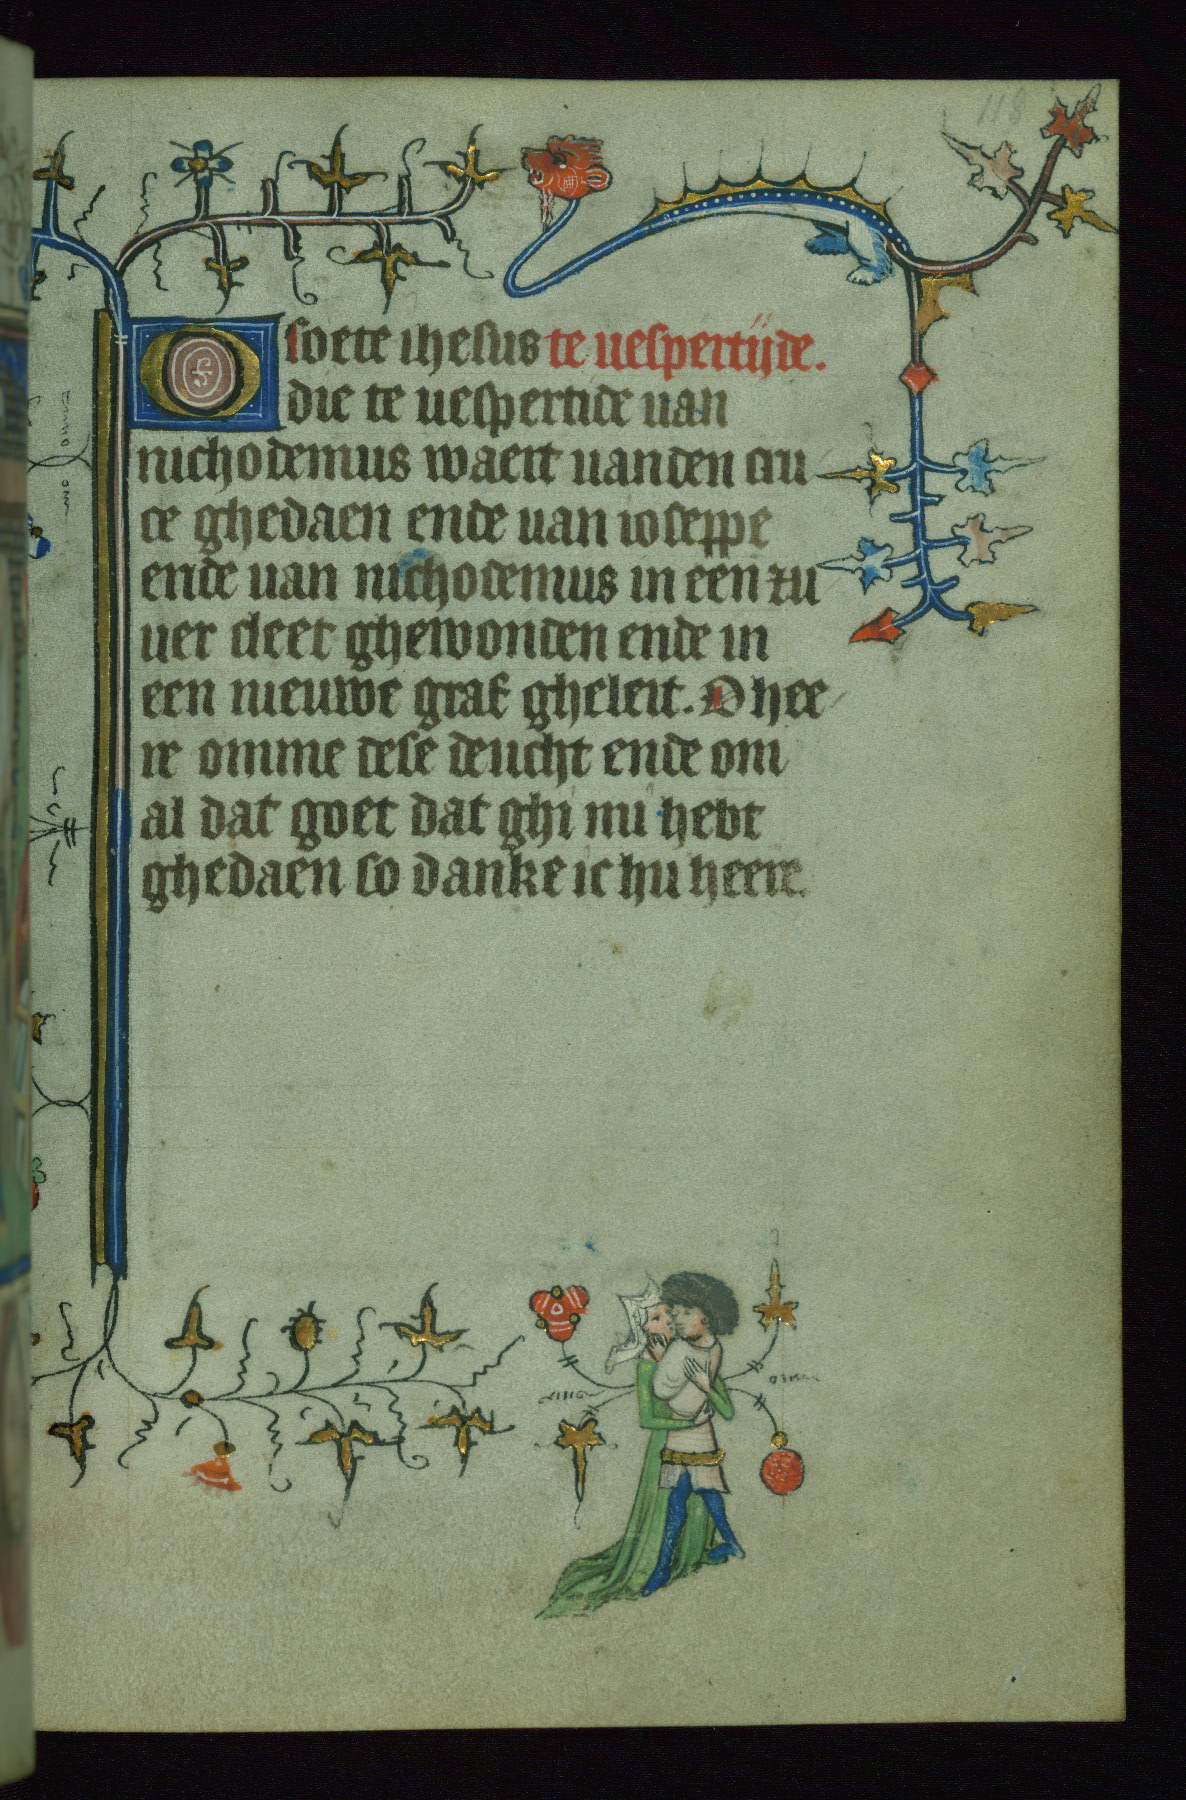 118
O soete ihesus te uespertijde.
die te uespertide uan
nichodemus waert uanden cru
ce ghedaen ende uan ioseppe
ende uan nichodemus in een zu
uer cleet ghewonden ende in
een nieuwe graf gheleit. O hee
re omme dese deucht ende om
al dat goet dat ghi mi hebt
ghedaen so danke ic hu heere.